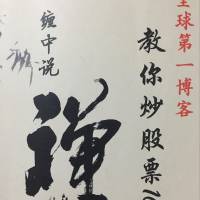 全球第一博客
教你炒股票10
缠中说
禅